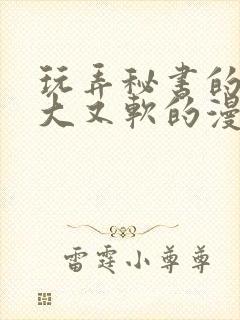 玩弄秘书的
大又软的漫
雷霆小尊尊